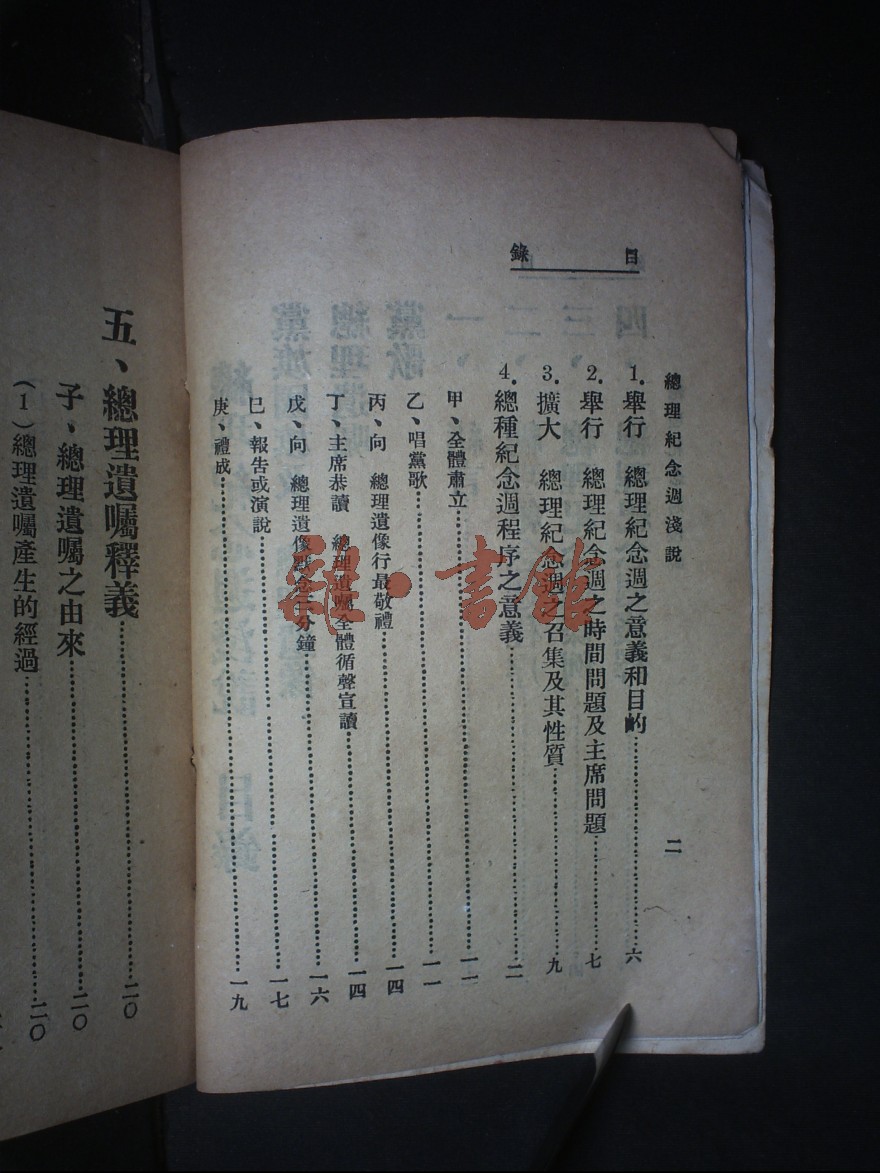 總理紀念週淺說
二
目錄
1.舉行　總理紀念週之意義和目的……六
2.舉行　總理紀念週之時間問題及主席問題……七
3.擴大　總理紀念週之召集及其性質……九
4.總種紀念週程序之意義……二
甲、全體肅立……一一
乙、唱黨歌……一一
丙、向　總理遺像行最敬禮……一四
丁、主席恭讀　總理遺囑全體循聲宣讀……一四
戊、向　總理遺像默念三分鐘……一六
巳、報告或演說……一七
庚、禮成……一九
五、總理遺囑釋義……二〇
子、總理遺囑之由來……二〇
(1)總理遺囑產生的經過……二〇
書館